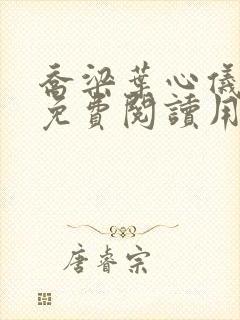 喬梁葉心儀
免費閱讀用
唐睿宗